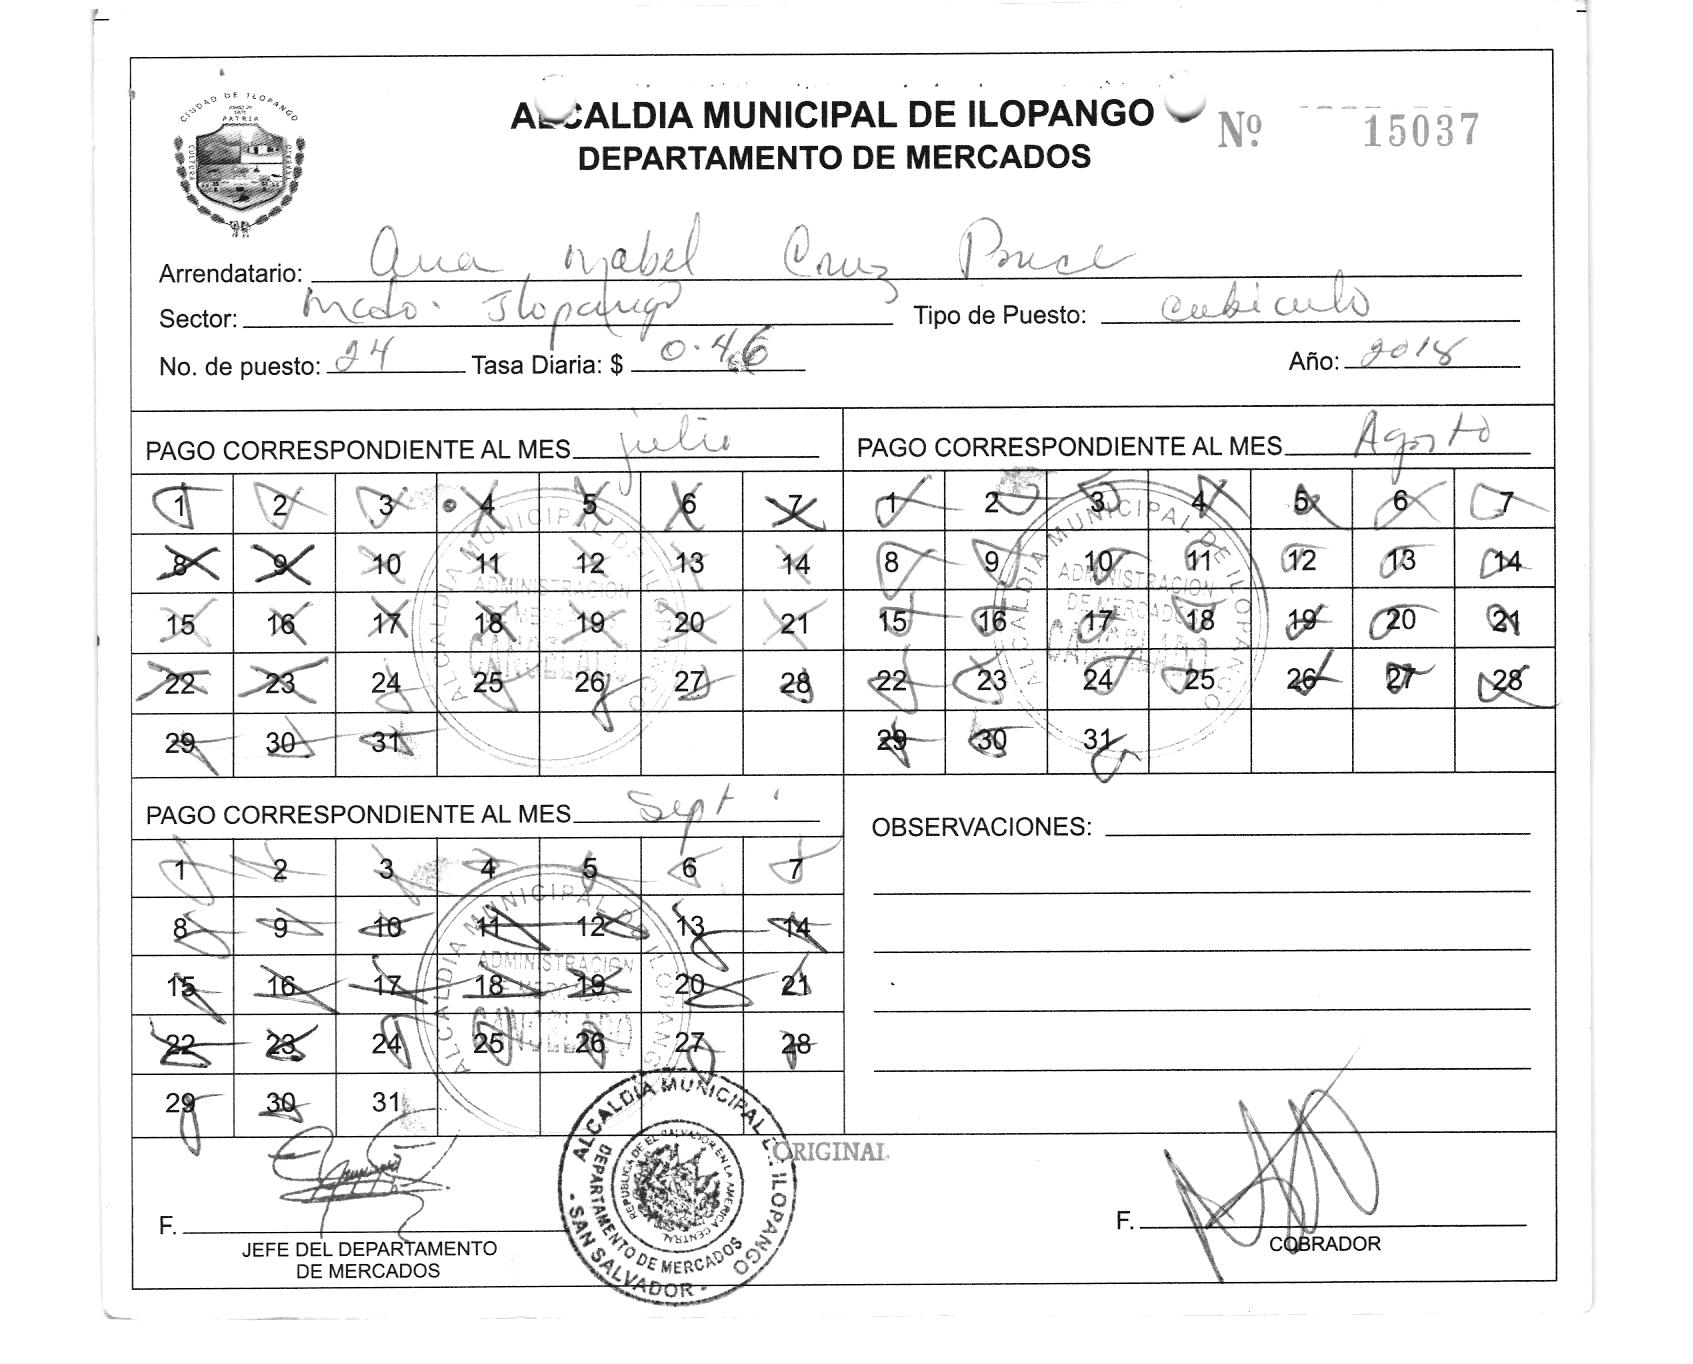 CIUDAD DE ILOPANGO
PATRIA
CULTURA
ALCALDIA MUNICIPAL DE ILOPANGO
DEPARTAMENTO DE MERCADOS
Nº 15037
Arrendatario: Ana Isabel Cruz Ponce
Sector: Mcdo. Ilopango Tipo de Puesto: cubiculo
No. de puesto: 24 Tasa Diaria: $ 0.46 Año: 2018
PAGO CORRESPONDIENTE AL MES julio
1 2 3 4 5 6 7
8 9 10 11 12 13 14
15 16 17 18 19 20 21
22 23 24 25 26 27 28
29 30 31
ALCALDIA MUNICIPAL DE ILOPANGO
ADMINISTRACION
DE MERCADOS
CANCELADO
PAGO CORRESPONDIENTE AL MES Agosto
1 2 3 4 5 6 7
8 9 10 11 12 13 14
15 16 17 18 19 20 21
22 23 24 25 26 27 28
29 30 31
ALCALDIA MUNICIPAL DE ILOPANGO
ADMINISTRACION
DE MERCADOS
CANCELADO
PAGO CORRESPONDIENTE AL MES Sept.
1 2 3 4 5 6 7
8 9 10 11 12 13 14
15 16 17 18 19 20 21
22 23 24 25 26 27 28
29 30 31
ALCALDIA MUNICIPAL DE ILOPANGO
ADMINISTRACION
DE MERCADOS
CANCELADO
OBSERVACIONES:
ORIGINAL
F.
JEFE DEL DEPARTAMENTO
DE MERCADOS
ALCALDIA MUNICIPAL DE ILOPANGO
DEPARTAMENTO DE MERCADOS
REPUBLICA DE EL SALVADOR EN LA AMERICA CENTRAL
- SAN SALVADOR -
F.
COBRADOR